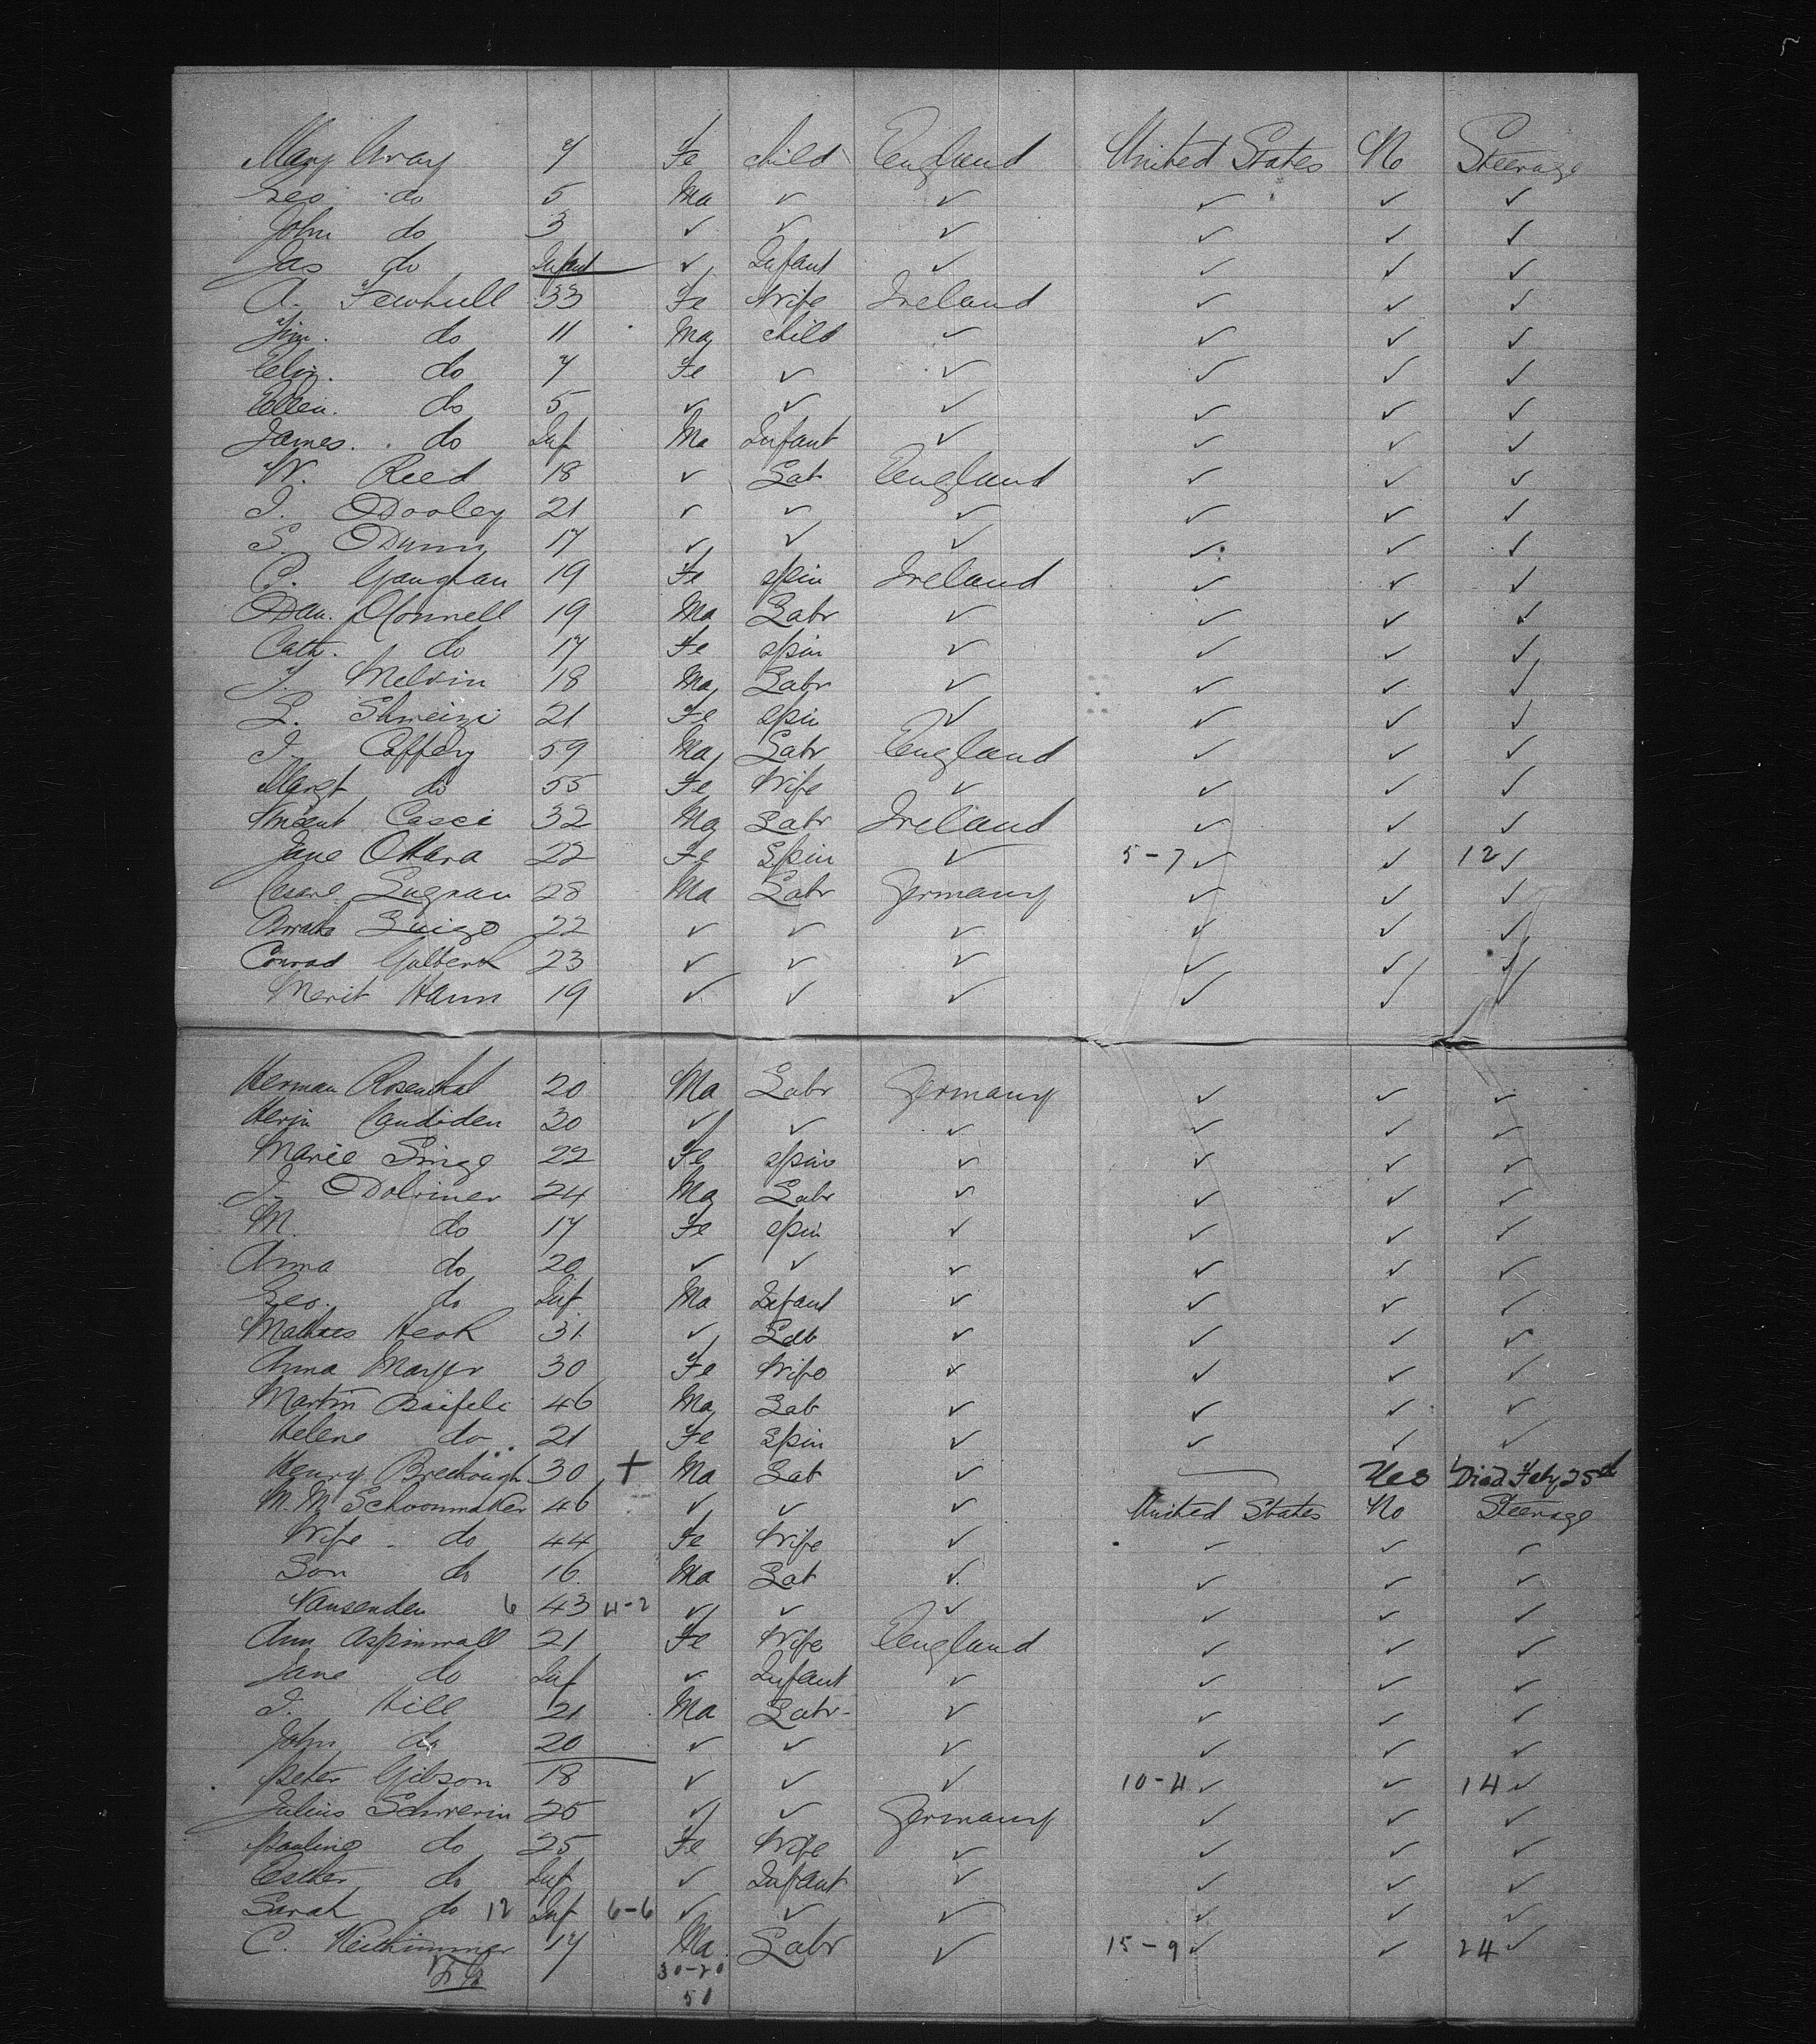 Mary Gray 7 Fe child England United States No Steerage
Geo do 5 Ma ✓ ✓ ✓ ✓ ✓
John do 3 ✓ ✓ ✓ ✓ ✓ ✓
Jas do Infant ✓ Infant ✓ ✓ ✓ ✓
A. Fewhull 33 Fe Wife Ireland ✓ ✓ ✓
Jim. do 11 Ma child ✓ ✓ ✓ ✓
Eliz. do 7 Fe ✓ ✓ ✓ ✓ ✓
Ellen. do 5 ✓ ✓ ✓ ✓ ✓ ✓
James. do Inf Ma Infant ✓ ✓ ✓ ✓
W. Reed 18 ✓ Lab England ✓ ✓ ✓
J. Dooley 21 ✓ ✓ ✓ ✓ ✓ ✓
S. Dunn 17 ✓ ✓ ✓ ✓ ✓ ✓
C. Gaughan 19 Fe spin Ireland ✓ ✓ ✓
Dan. OConnell 19 Ma Labr ✓ ✓ ✓ ✓
Cath. do 17 Fe spin ✓ ✓ ✓ ✓
J. Melvin 18 Ma Labr ✓ ✓ ✓ ✓
L. 21 Fe spin ✓ ✓ ✓ ✓
J. Caffely 59 Ma Labr England ✓ ✓ ✓
Margt do 55 Fe Wife ✓ ✓ ✓ ✓
Vincent Casci 32 Ma Labr Ireland ✓ ✓ ✓
Jane OHara 22 Fe Spin ✓ 5-7 ✓ ✓ 12 ✓
Lugnan 28 Ma Labr Germany ✓ ✓ ✓
Luigo 22 ✓ ✓ ✓ ✓ ✓ ✓
Conrad 23 ✓ ✓ ✓ ✓ ✓ ✓
Merit Hann 19 ✓ ✓ ✓ ✓ ✓ ✓
Herman Rosenthal 20 Ma Labr Germany ✓ ✓ ✓
Candiden 30 ✓ ✓ ✓ ✓ ✓ ✓
Marie Singe 22 Fe spin ✓ ✓ ✓ ✓
J. Dolriner 24 Ma Labr ✓ ✓ ✓ ✓
M. do 17 Fe spin ✓ ✓ ✓ ✓
Anna do 20 ✓ ✓ ✓ ✓ ✓ ✓
Geo. do Inf Ma Infant ✓ ✓ ✓ ✓
Mathaes Herk 31 ✓ Lab ✓ ✓ ✓ ✓
Anna Mayer 30 Fe Wife ✓ ✓ ✓ ✓
Martin Baifele 46 Ma Lab ✓ ✓ ✓ ✓
Helene do 21 Fe Spin ✓ ✓ ✓ ✓
Henry 30 + Ma Lab ✓ Yes Died Feby 25th
M. M. Schoonmaker 46 ✓ ✓ ✓ United States No Steerage
Wife do 44 Fe Wife ✓ ✓ ✓ ✓
Son do 16 Ma Lab ✓ ✓ ✓ ✓
Vansenden 6 43 4-2 ✓ ✓ ✓ ✓ ✓ ✓
Ann Aspinwall 21 Fe Wife England ✓ ✓ ✓
Jane do Inf ✓ Infant ✓ ✓ ✓ ✓
J. Hill 21 Ma Labr ✓ ✓ ✓ ✓
John do 20 ✓ ✓ ✓ ✓ ✓ ✓
Peter Gibson 18 ✓ ✓ ✓ 10-4 ✓ ✓ 14 ✓
Julius Schwerin 25 ✓ ✓ Germany ✓ ✓ ✓
Pauline do 25 Fe Wife ✓ ✓ ✓ ✓
Esther do Inf ✓ Infant ✓ ✓ ✓ ✓
Sarah do 12 Inf 6-6 ✓ ✓ ✓ ✓ ✓ ✓
C. 17 Ma Labr ✓ 15-9 ✓ ✓ 24 ✓
30-20
51